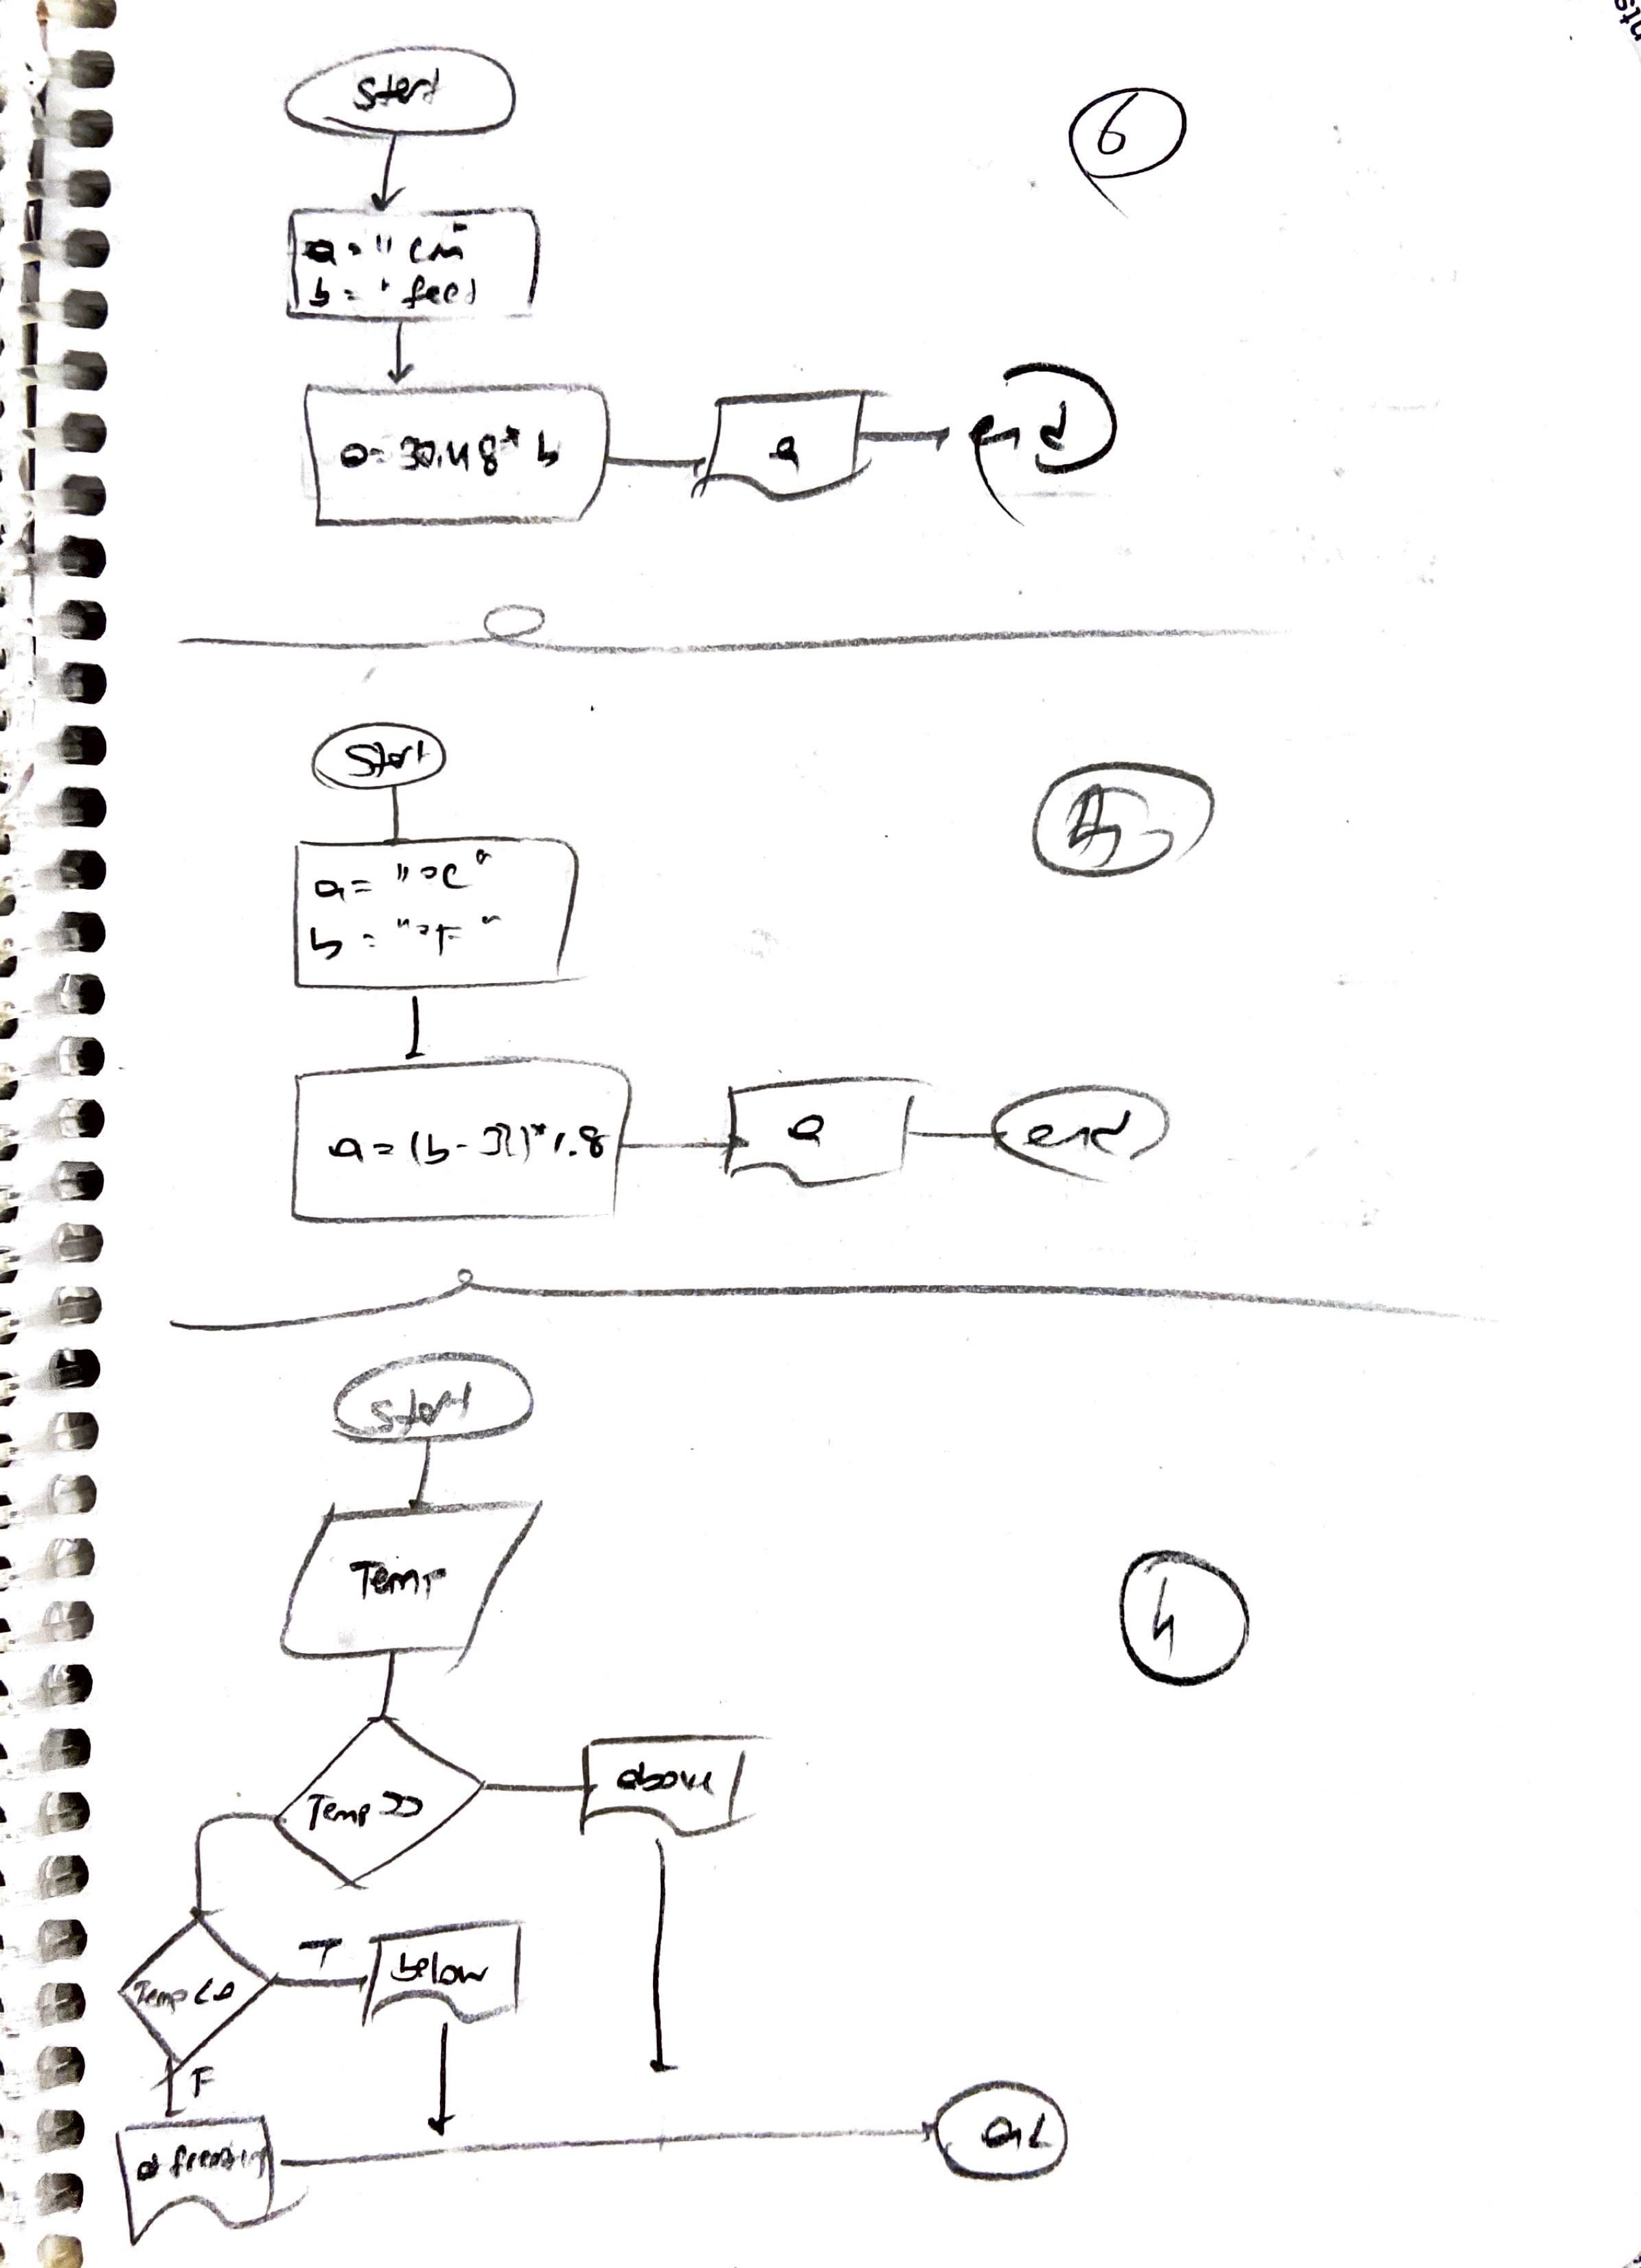 Start
6
a = "cm"
b = " feet
a = 30.48 * b
a
end
Start
5
a = "°C"
b = "°F"
a = (b - 32) * 1.8
a
end
Start
Temp
4
Temp >0
above
Temp < 0
T
below
F
at freezing
end